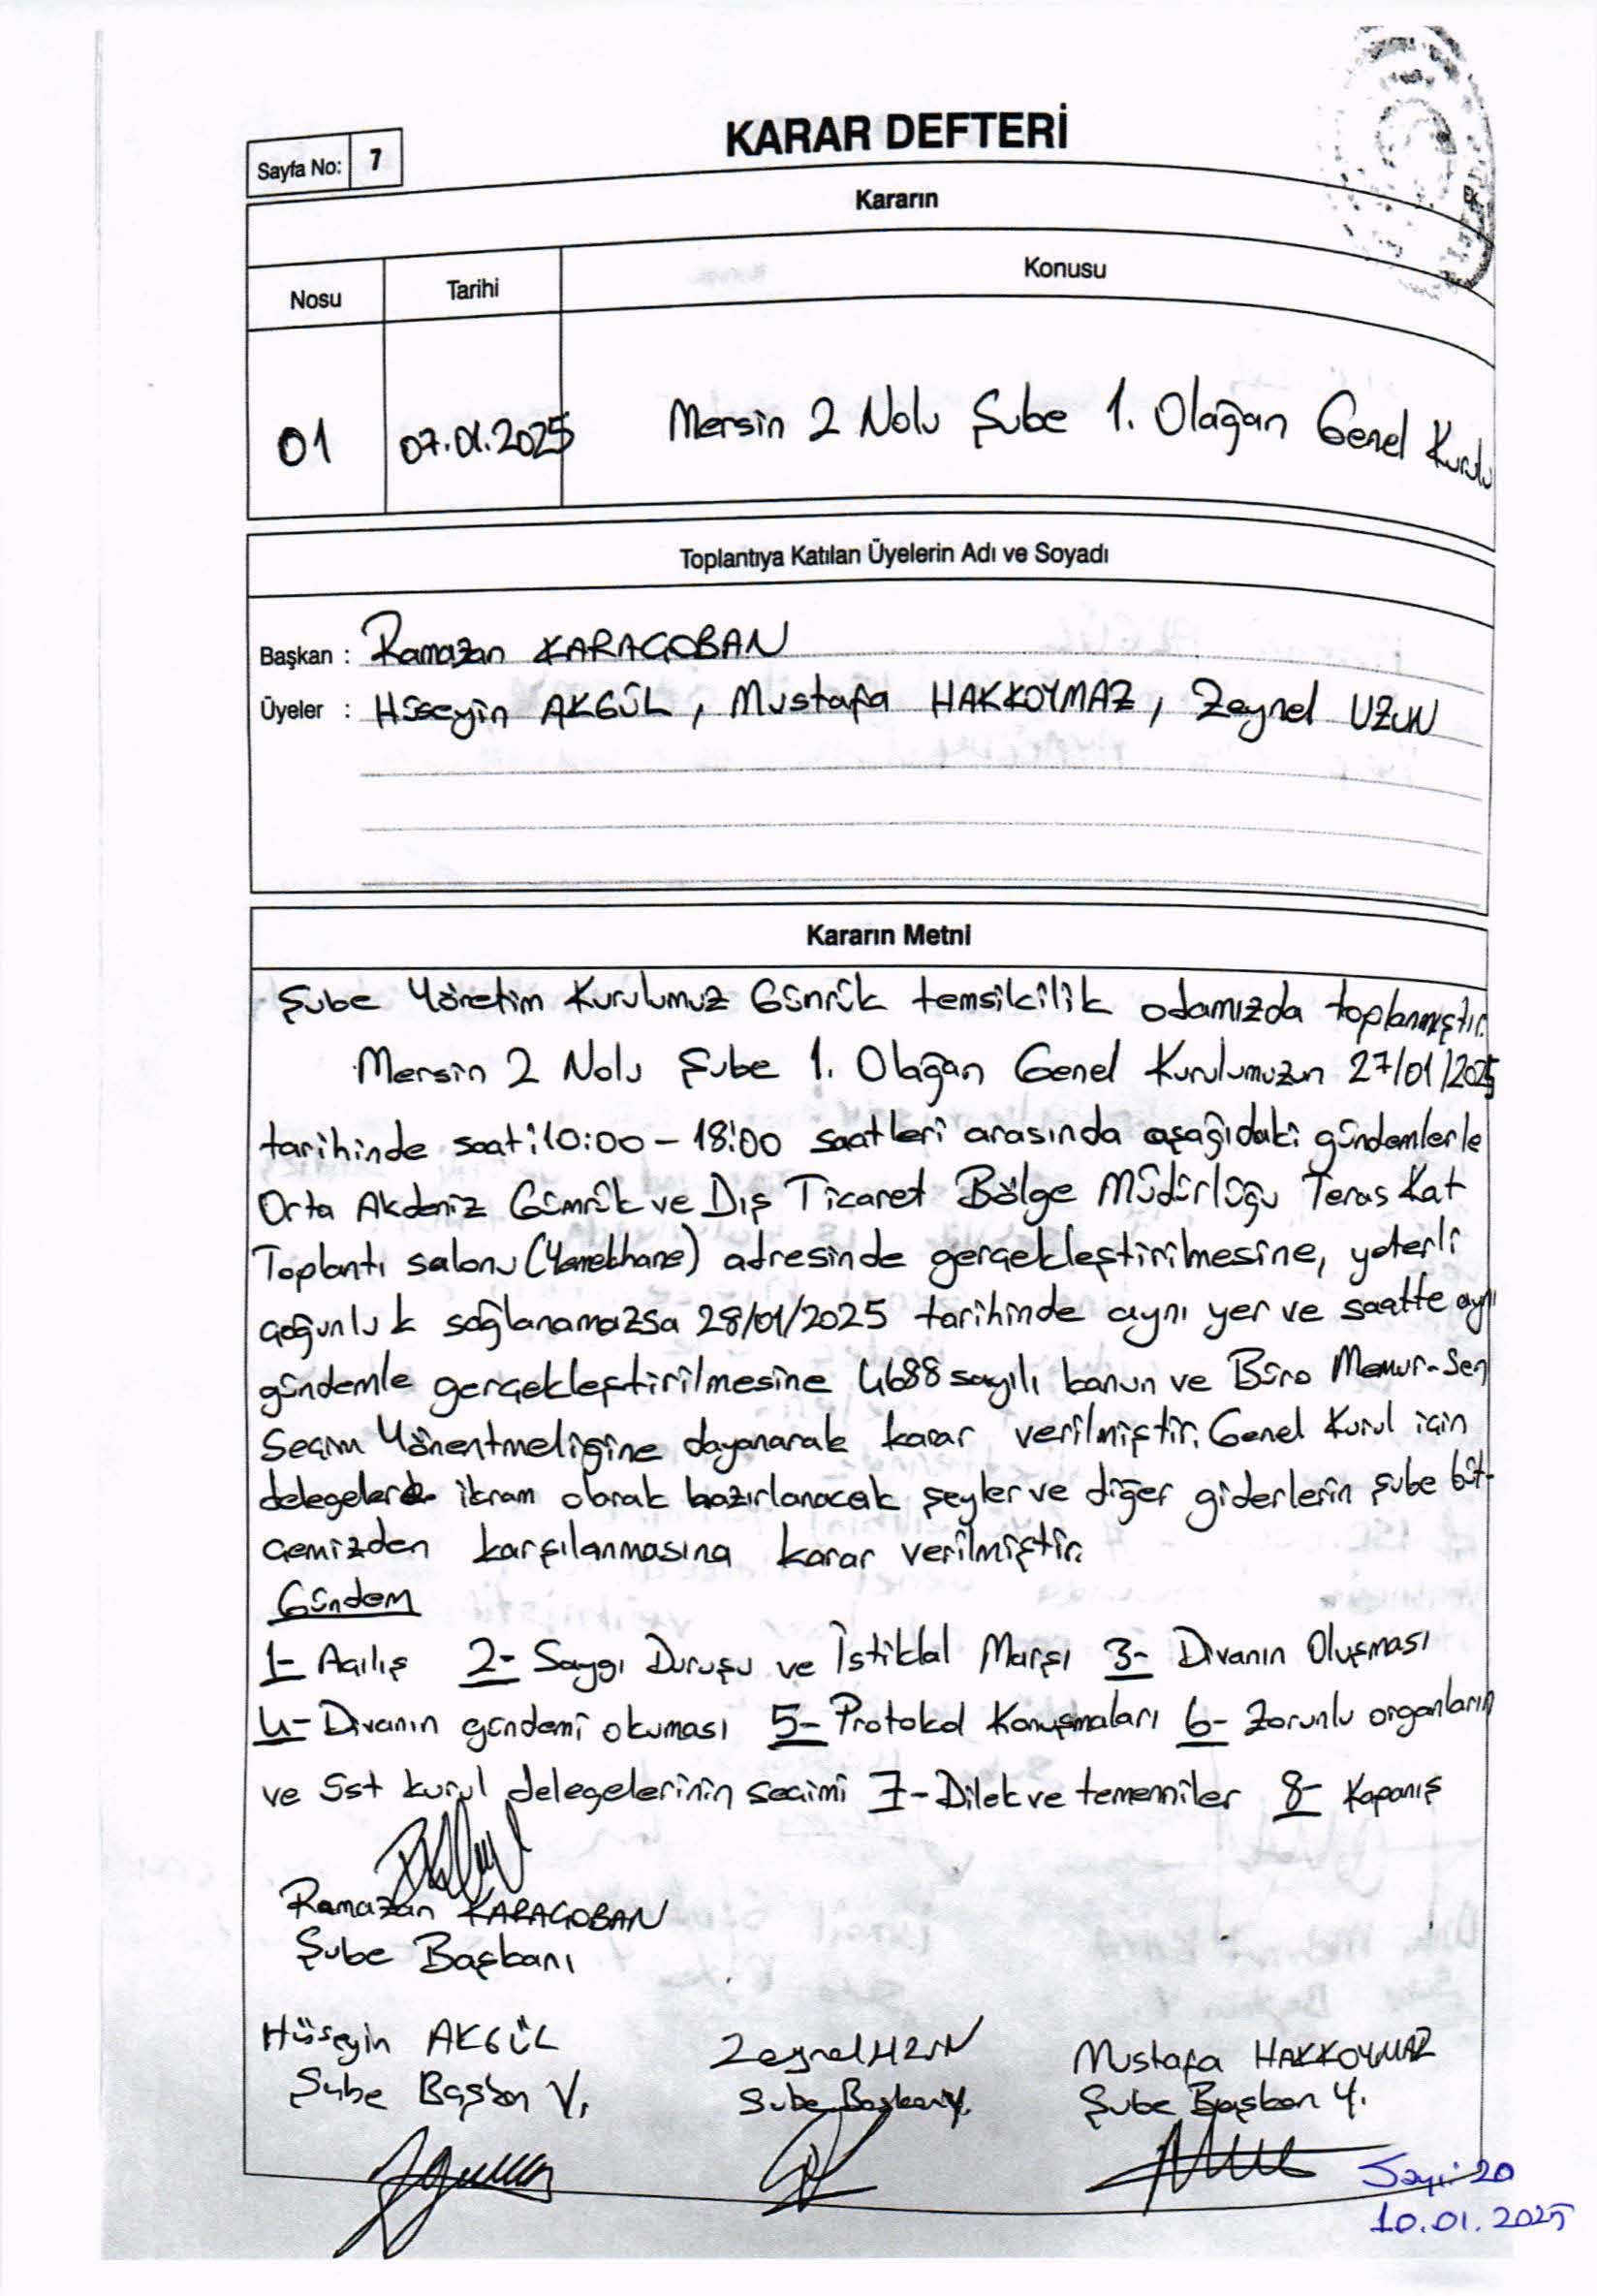 KARAR DEFTERİ
Sayfa No: 7
Kararın
Nosu Tarihi Konusu
01 07.01.2025 Mersin 2 Nolu Şube 1. Olağan Genel Kurulu
Toplantıya Katılan Üyelerin Adı ve Soyadı
Başkan : Ramazan KARAÇOBAN
Üyeler : Hüseyin AKGÜL, Mustafa HAKKOYMAZ, Zeynel UZUN
Kararın Metni
Şube Yönetim Kurulumuz Gümrük temsilcilik odamızda toplanmıştır.
Mersin 2 Nolu Şube 1. Olağan Genel Kurulumuzun 27/01/2025
tarihinde saat:10:00 - 18:00 saatleri arasında aşağıdaki gündemlerle
Orta Akdeniz Gümrük ve Dış Ticaret Bölge Müdürlüğü Teras Kat
Toplantı salonu (Yemekhane) adresinde gerçekleştirilmesine, yeterli
çoğunluk sağlanamazsa 28/01/2025 tarihinde aynı yer ve saatte aynı
gündemle gerçekleştirilmesine 4688 sayılı kanun ve Büro Memur-Sen
Seçim Yönentmeliğine dayanarak karar verilmiştir. Genel Kurul için
delegelere ikram olarak hazırlanacak şeyler ve diğer giderlerin şube büt-
çemizden karşılanmasına karar verilmiştir.
Gündem
1- Açılış 2- Saygı Duruşu ve İstiklal Marşı 3- Divanın Oluşması
4- Divanın gündemi okuması 5- Protokol Konuşmaları 6- Zorunlu organların
ve üst kurul delegelerinin seçimi 7- Dilek ve temenniler 8- Kapanış
Ramazan KARAÇOBAN
Şube Başkanı
Hüseyin AKGÜL Zeynel UZUN Mustafa HAKKOYMAZ
Şube Başkan V. Şube Başkan Y. Şube Başkan Y.
Sayı: 20
10.01.2025